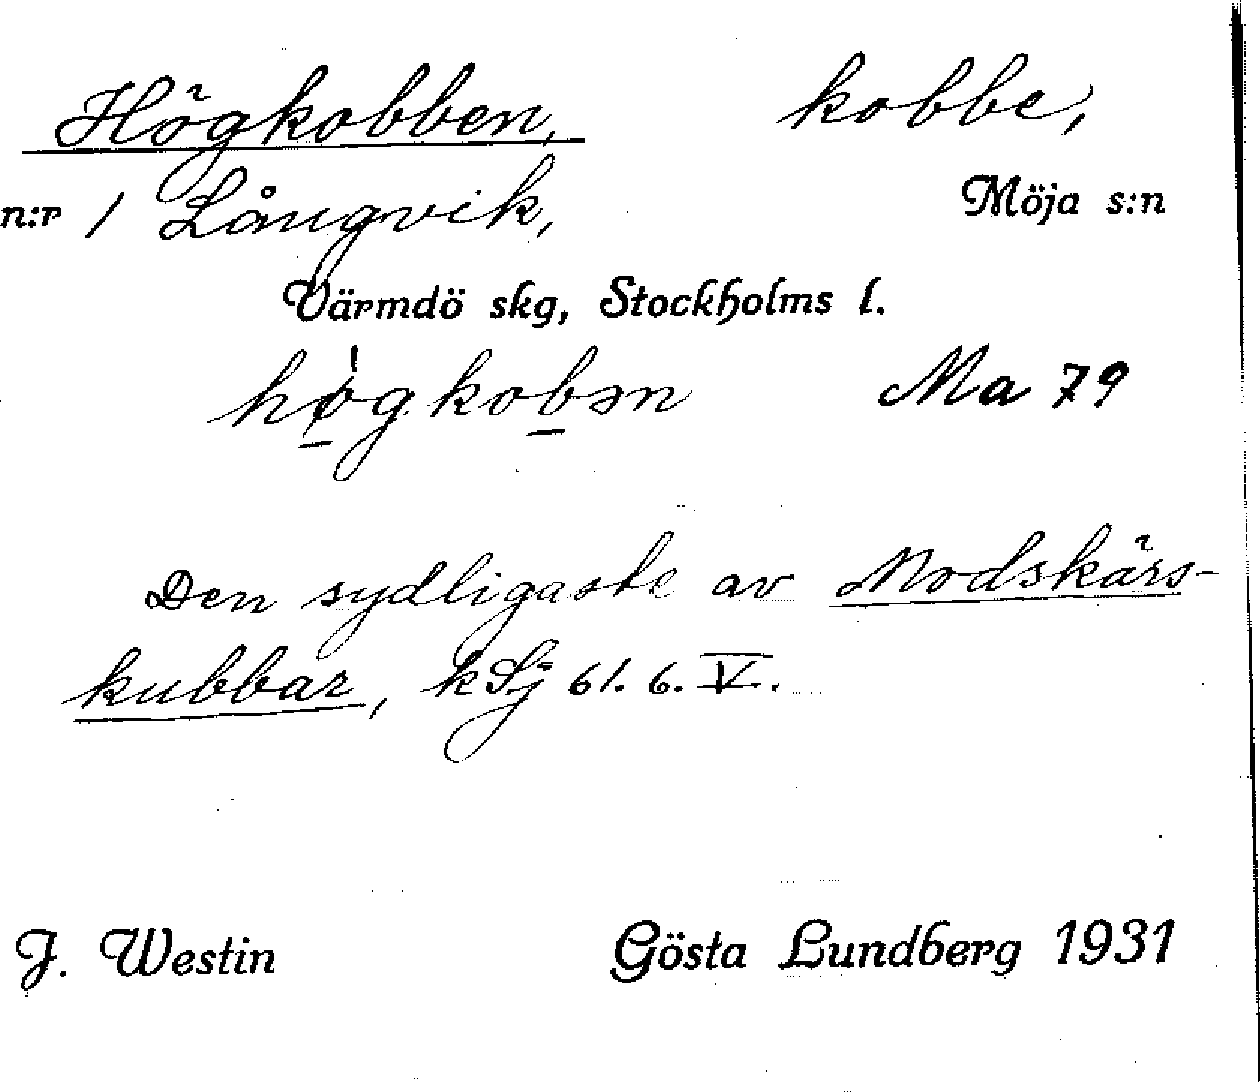 Högkobben, kobbe,
n:r 1 Långvik, Möja s:n
Värmdö skg, Stockholms l.
Ma 79
Den sydligaste av Modskärs-
kubbar, kSj 61. 6. V.
J. Westin Gösta Lundberg 1931